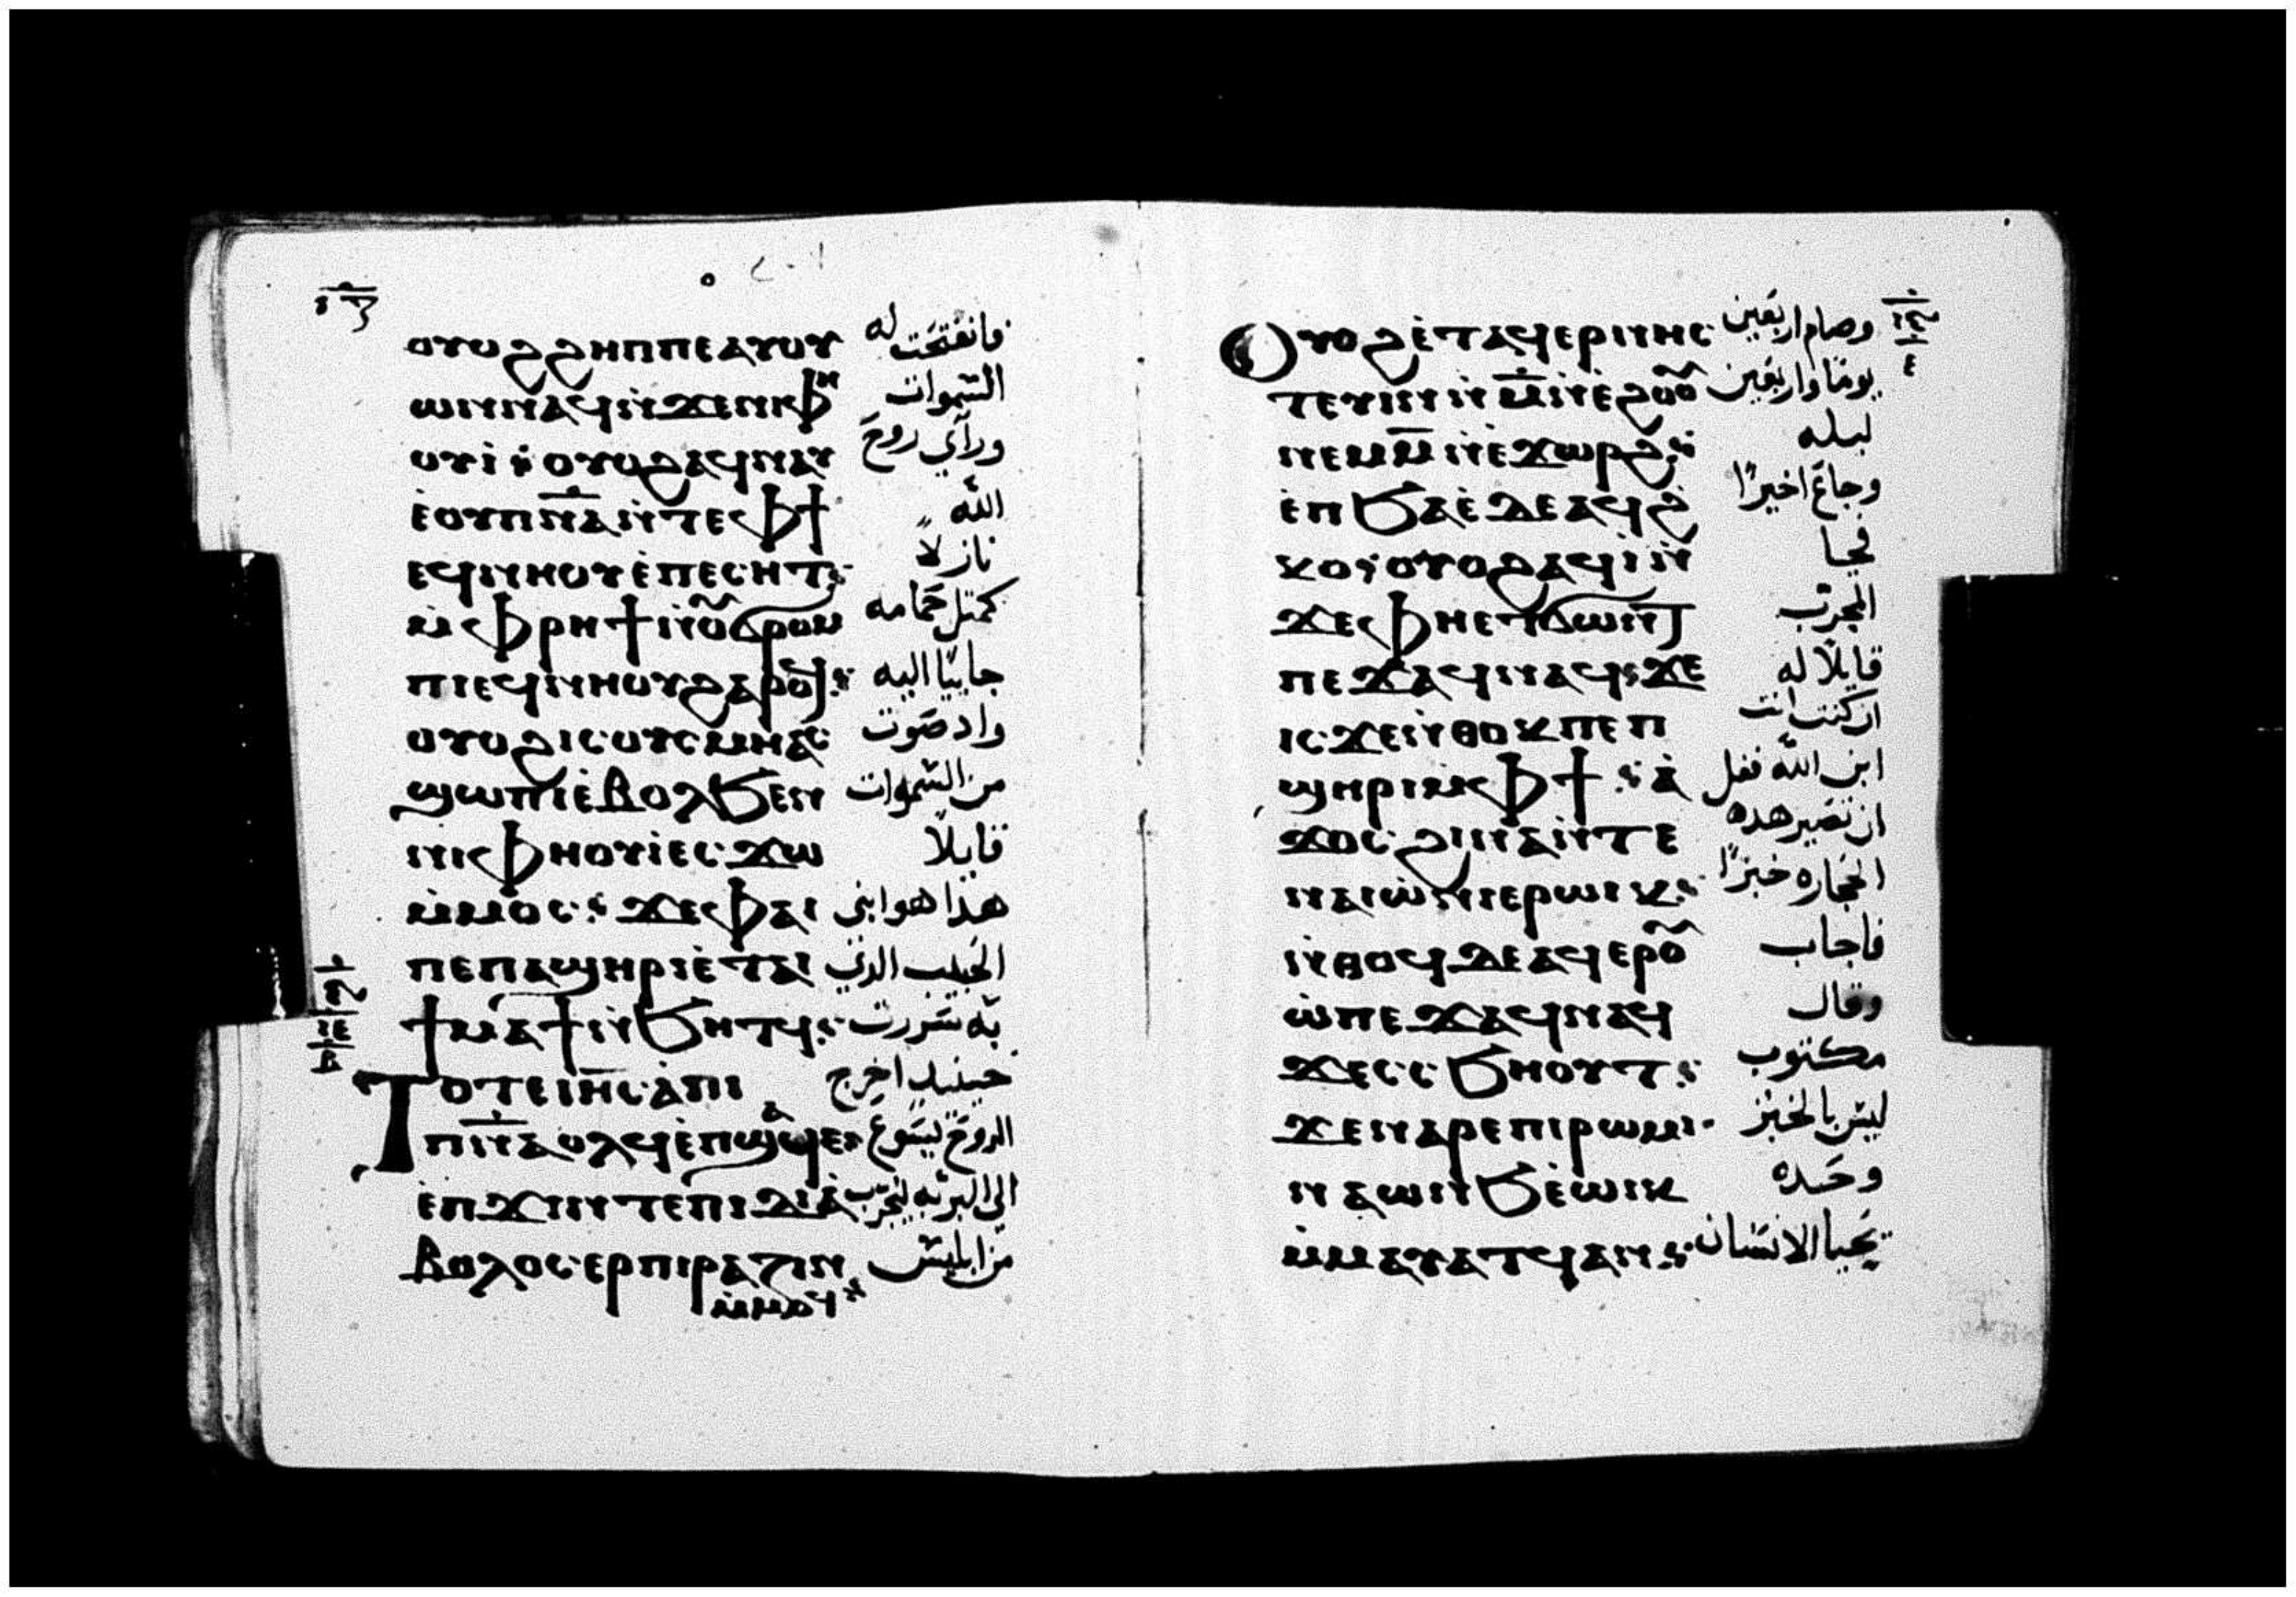 ⲟⲩⲟϩ ϩⲏⲡⲡⲉ ⲁⲩⲟⲩ فانفتحت له
ⲱⲛ ⲛⲁϥ ⲛ̇ϫⲉ ⲛⲓⲫⲏ السموات
ⲟⲩⲓ̇ ⲟⲩⲟϩ ⲁϥⲛⲁⲩ وراي روح
ⲉ̇ⲟⲩⲡⲛ̅ⲁ ⲛ̇ⲧⲉ ⲫϯ الله
ⲉϥⲛⲏⲟⲩ ⲉ̇ⲡⲉⲥⲏⲧ نازلاً
ⲙ̇ⲫⲣⲏϯ ⲛ̇ⲟⲩϭⲣⲟⲙ كمثل حمامه
ⲡⲓ ⲉϥⲛⲏⲟⲩ ϩⲁⲣⲟϥ جاييًا اليه
ⲟⲩⲟϩ ⲓⲥ ⲟⲩⲥⲙⲏ ⲁⲥ واد صوت
ϣⲱⲡⲓ ⲉ̇ⲃⲟⲗ ϧⲉⲛ من السموات
ⲛⲓⲫⲏⲟⲩⲓ̇ ⲉⲥϫⲱ قايلاً
ⲙ̇ⲙⲟⲥ ϫⲉ ⲫⲁⲓ هذا هو ابني
ⲡⲉ ⲡⲁϣⲏⲣⲓ ⲉ̇ⲧⲁⲓ الحبيب الذي
ϯⲙⲁϯ ⲛ̇ϧⲏⲧϥ به سررت
Ⲧⲟⲧⲉ ⲓⲏ̅ⲥ ⲁ̇ ⲡⲓ حينيد اخرج
ⲡⲛ̅ⲁ ⲟⲗϥ ⲉ̇ⲡϣⲁϥⲉ الروح يسوع
ⲉ̇ⲡϫⲓⲛⲧⲉ ⲡⲓⲇⲓⲁ̇ الى البريه ليجرب
ⲃⲟⲗⲟⲥ ⲉⲣⲡⲓⲣⲁⲍⲓⲛ من ابليس
ⲙ̇ⲙⲟϥ
Ⲟⲩⲟϩ ⲉ̇ⲧⲁϥⲉⲣⲛⲏⲥ وصام اربعين
ⲧⲉⲩⲓⲛ ⲛ̇ⲙ̅ ⲛ̇ⲉ̇ϩⲟⲟⲩ يومًا واربعين
ⲛⲉⲙ ⲙ̅ ⲛ̇ⲉ̇ϫⲱⲣϩ ليله
ⲉ̇ⲡϧⲁⲉ̇ ⲇⲉ ⲁϥϩ وجاع اخيرًا
ⲕⲟ ⲟⲩⲟϩ ⲁϥⲓ̇ ⲛ̇ فجا
ϫⲉ ⲫⲏⲉⲧϭⲱⲛⲧ المجرب
ⲡⲉϫⲁϥ ⲛⲁϥ ϫⲉ قايلاً له
ⲓⲥϫⲉ ⲛ̇ⲑⲟⲕ ⲡⲉ ⲡ ان كنت انت
ϣⲏⲣⲓ ⲙ̇ⲫϯ ⲁ̇ ابن الله فقل
ϫⲟⲥ ϩⲓⲛⲁ ⲛ̇ⲧⲉ ان تصير هده
ⲛⲁⲓⲱ̇ⲛⲓ ⲉⲣⲱⲓⲕ الحجاره خبزًا
ⲛ̇ⲑⲟϥ ⲇⲉ ⲁϥⲉⲣⲟⲩ فاجاب
ⲱ̇ ⲡⲉϫⲁϥ ⲛⲁϥ وقال
ϫⲉ ⲥⲥϧⲏⲟⲩⲧ مكتوب
ϫⲉ ⲛⲁⲣⲉ ⲡⲓⲣⲱⲙⲓ ليس بالخبز
ⲛⲁⲱⲛϧ ⲉ̇ⲱⲓⲕ وحده
ⲙ̇ⲙⲁⲩⲁⲧϥ ⲁⲛ يحيا الانسان